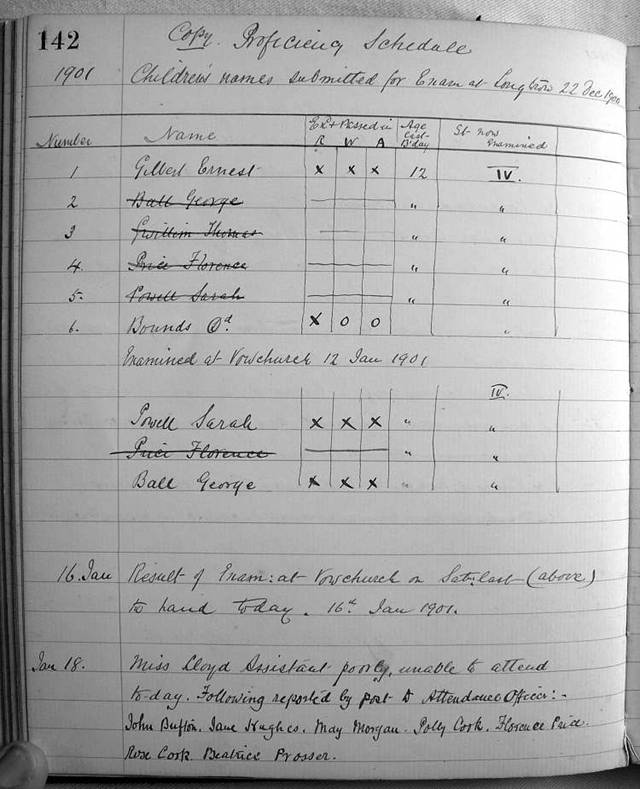 142 Copy. Proficiency Schedule
1901 Children's names submitted for Exam at Longtown 22 Dec 1900
Number Name Ex & Passed in R W A Age last B'day St. now Examined
1 Gilbert Ernest x x x 12 IV.
2 Ball George " "
3 Gwillim Thomas " "
4. Price Florence " "
5. Powell Sarah " "
6. Bounds Od. x o o "
Examined at Vowchurch 12 Jan 1901
IV.
Powell Sarah x x x " "
Price Florence " "
Ball George x x x " "
16. Jan Result of Exam: at Vowchurch on Sat: last (above)
to hand today. 16th Jan 1901.
Jan 18. Miss Lloyd Assistant poorly, unable to attend
to-day. Following reported by post to Attendance Officer:-
John Bufton. Jane Hughes. May Morgan. Polly Cook. Florence Price.
Rose Cook. Beatrice Prosser.